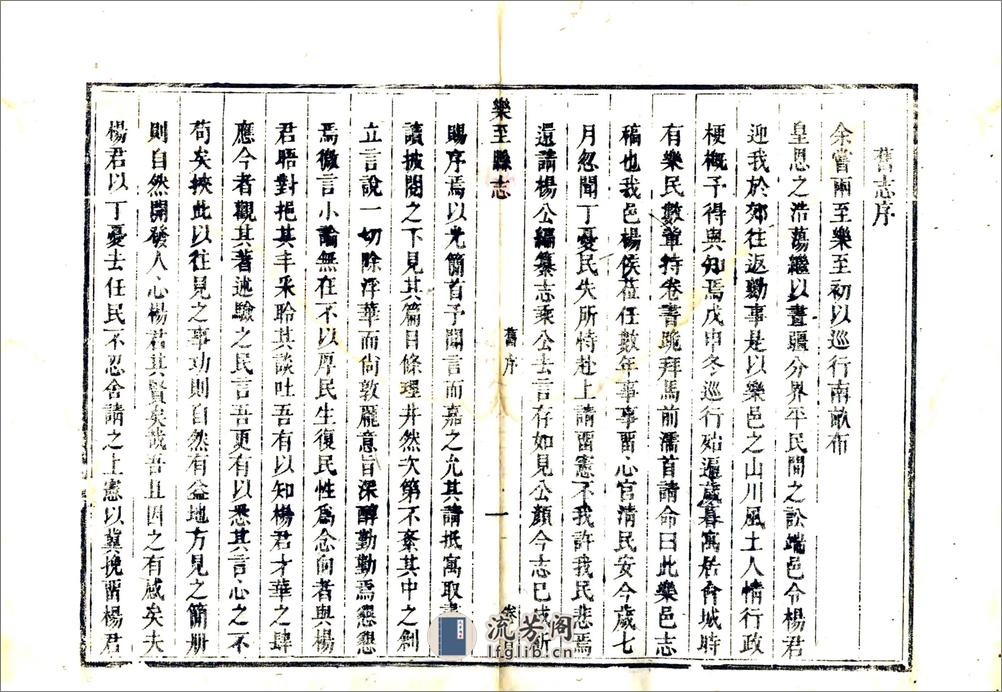 舊志序
余嘗兩至樂至初以巡行南畝布
皇恩之浩蕩繼以晝疆分界平民間之訟端邑令楊君
迎我於郊往返勷事是以樂邑之山川風土人情行政
梗概予得與知焉戊申冬巡行殆遍歲暮寓居會城時
有樂民數輩持卷書跪拜馬前濡首請命曰此樂邑志
稿也我邑楊侯蒞任數年事事畱心官清民安今歲七
月忽聞丁憂民失所恃赴上請畱憲不我許我民悲焉
還請楊公編纂志乘公去言存如見公顏今志已成祈
樂至縣志
舊序
一
賜序焉以光簡首予聞言而嘉之允其請抵寓取書
讀披閱之下見其篇目條理井然次第不紊其中之創
立言說一切除浮華而尚敦龐意旨深醇勤勤焉懇懇
焉微言小論無在不以厚民生復民性為念向者與楊
君晤對挹其丰采聆其談吐吾有以知楊君才華之肆
應今者觀其著述驗之民言吾更有以悉其言心之不
苟矣挾此以往見之事功則自然有益地方見之簡册
則自然開發人心楊君其賢矣哉吾且因之有感矣夫
楊君以丁憂去任民不忍舍請之上憲以冀挽畱楊君
流芳阁
lfglib.cn